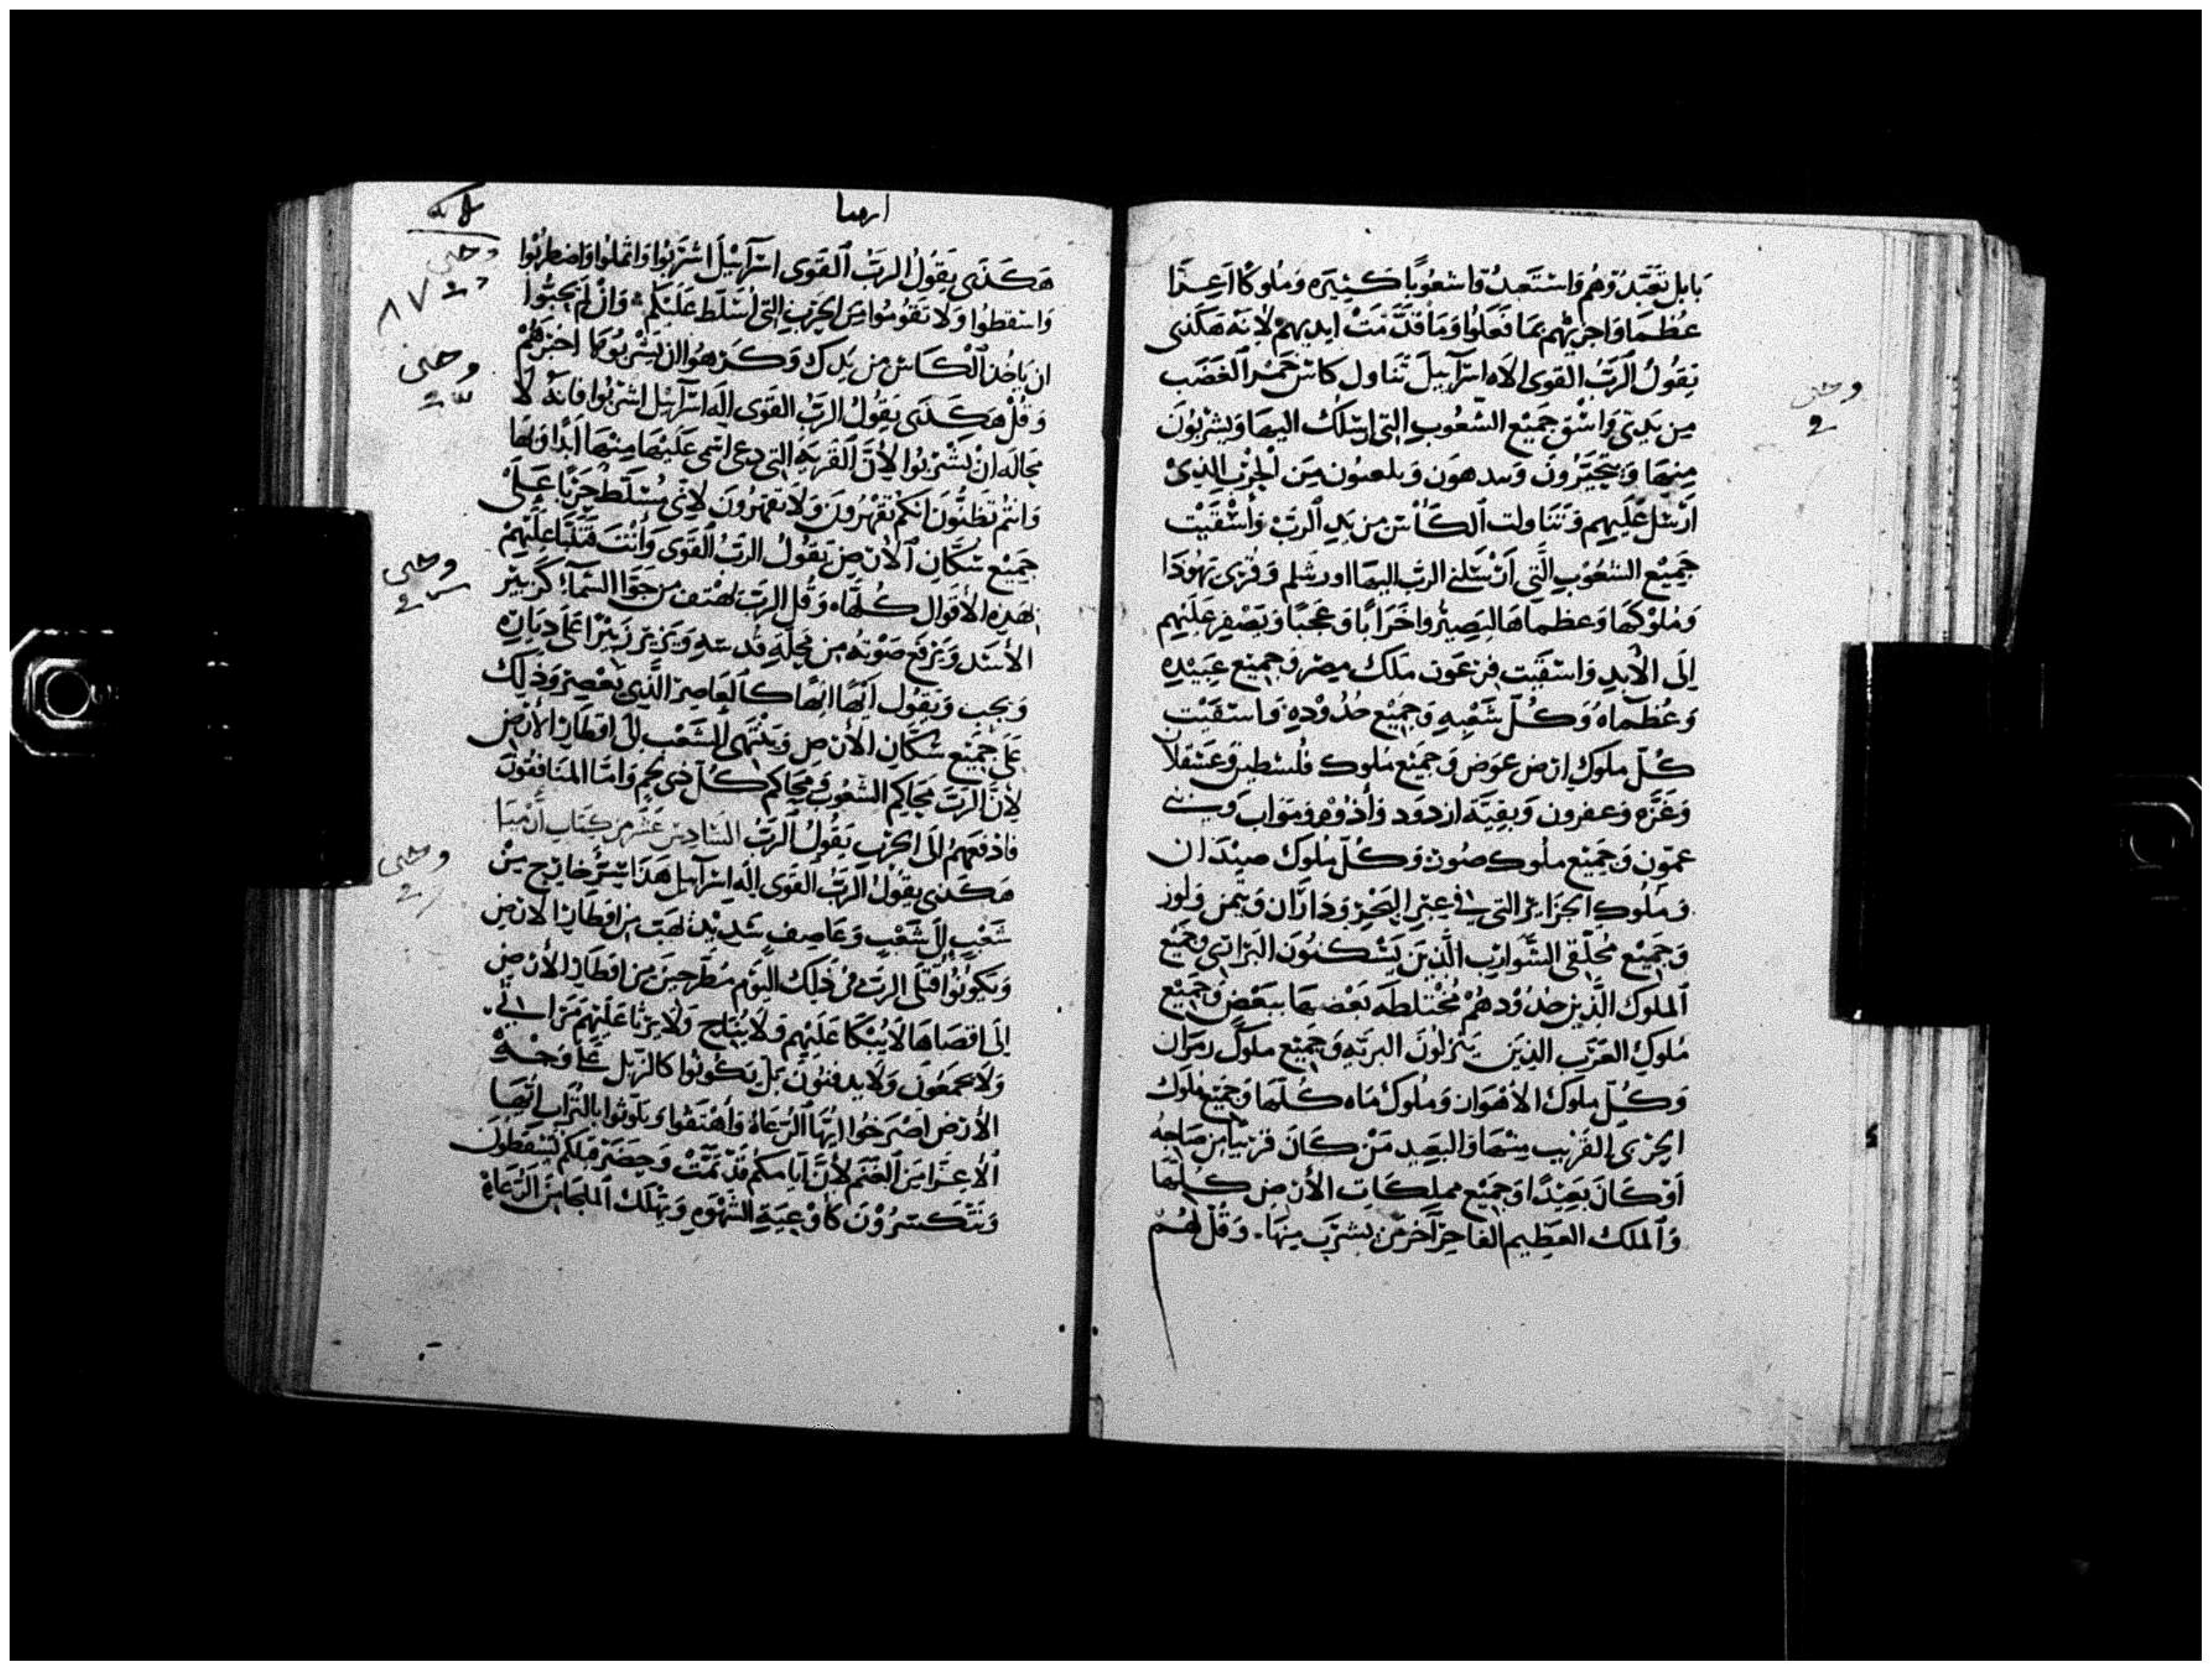 بابل تعبدوهم واستعبدوا شعوبًا كثيره وملوكا اعزا
عُظما واجزيهم بما فعلوا وما قدَّمَتْ ايديهمْ لانه هكذى
يقُولُ الرَّبُ القوى الاه اسرآييلَ تناول كاسَ خمر الغَضَب
مِن يَدِىّ وَاسْقِ جميْع الشعُوبِ التى ارسلك اليها ويشربُونَ
منها ويتحيَّرُونَ وَيدهون ويلعنون مِن الحرْب الذىْ
اَرْسل عليهم وتناولت الكَاْس من يَدِ الرَبْ وَأسْقيْت
جَميْع الشعُوْبِ الَّتى ارْسَلنى الرب اليها اورشلم وقُرى يَهُودَا
وَملوْكهَا وَعظماهَا ليصيرُوا خَرَابًا وَعجبًا وَيصْفر عَليْهِم
اِلَى الاَبد واسقيت فرعَون ملك مِصْر وجميع عبيده
وَعُظماهُ وَكُلّ شَعْبِهِ وَجميْع حُدُوْدهِ وَاسقيْت
كُلّ ملوك ارض عوض وَجميْع ملوك فلسطين وَعسقلان
وَغزه وعفرون وبقيَّة ازدود وأذوم وموَاب وَبنى
عمّون وَجميْع ملوك صُوْر وَكُلّ مُلوك صيْدَان
وملُوك الجزاير التى فى عبر البَحْر وَدَادَان وتيمن ولوز
وَجميْع مُحلّقى الشَوارب الَّذين يَسْكنُونَ البرارى وجميْع
الملوك الَّذين حُدُوْدهمْ مُخْتلطَه بَعْضهَا ببعض وَجميْع
مُلوك العَرَب الذينَ ينزلُونَ البريه وَجميْع ملوك زمران
وَكُلّ ملوك الاهوَاز وملُوك ماه كُلّها وَجميْع ملوك
الجزى القريب منها وَالبعيد مَنْ كَانَ قريبًا من صَاحبه
اوْ كَانَ بَعيْدًا وَجميْع مملكات الأرض كُلّها
وَالملك العَظيم الفاخر آخر من يشرب منهَا. وَقُلْ لهُمْ
ارميا
هَكَذَى يَقُولُ الرَّبُ القَوى اسرآييلَ اشربُوا وَاثملُوا وَاضطربُوا
وَاسقطُوا وَلا تقومُوا مِن الحَرب التى اُسَلّط عَلَيْكم وَانْ لم يحبّوا
ان يَاخذ الكَاس من يَدك وَكَرهوُا ان يَشْربُوهَا اخبرهُمْ
وَقُلْ هَكَذَى يَقُولُ الرَبُ القَوى اِلَه اسرآييل اشربُوا فانهُ لاَ
محاله انْ يَشربُوا لأنَّ القَريَه التى دعى اسمى عَليهَا منهَا ابدا ولها
وَانتم تظنُّونَ انكم تقهرُونَ وَلاَ تقهرُونَ لأنى مُسلّط حربًا عَلَى
جميْع سُكّان الأرض يَقُولُ الرَبُ القَوى وَأنْتَ فتنبّا عَليْهِمْ
بهَذِه الأقوال كُلّهَا وَقُل الرَب يهْتف من جَوَّا السَّمآء كزئير
الأسَد وَيَرْفَع صَوْته من محلّة قدسه وَيزير زئيْرًا عَلَى ديَاره
وَيجب وَيقُول ايّها ايّها كالعَاصر الَّذى يَعْصر وَذلكَ
عَلَى جميْع سُكّان الأرض وَينتهى الشَعْب الى اقطار الأرض
لأنَّ الرَبَ يحَاكم الشعُوْبَ ويحاكم كُلّ ذى لحم وَامّا المنافقُون
فادفعَهمُ الى الحرب يَقُولُ الرَبُ السَّادس عَشر من كتاب ارميا
هَكَذى يَقُوْلُ الرَّبُ القَوى اِلَه اسرآييل هَذَا شرّ خارج مِنْ
شَعْب اِلَى شَعْب وَعَاصف شديد تهب من اقطار الأرض
وَيكونوا قتلَى الرَب فى ذلكَ اليوْم مُطرحيْن مِن اقطار الأرض
اِلَى اقصَاهَا لاَ يُبْكَا عَليْهِم وَلاَ يُنَاح وَلاَ يرْثَا عَليْهم مَراثى
وَلاَ يجمَعُون وَلاَ يدفنُون بَل يكونُوا كالزبل على وَجْه
الأرض اصْرَخُوا ايّها الرُعَاةُ وَأهتفوا وَتلوثوا بالتراب ايّها
الأعزا مِن الغَنم لأنَّ ايامكم قَدْ تمّتْ وَحضر قتلكم تَسقطون
وَتَتكسّرُوْن كأوْعيَة الشهْوَه وَيهلك الملجا مِن الرّعَاة